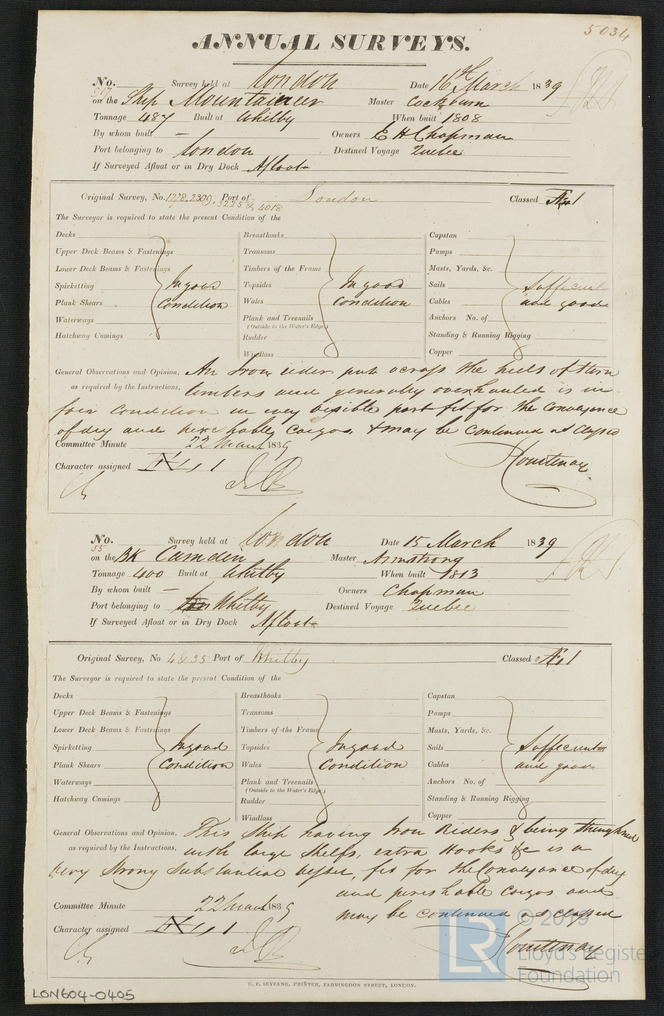 5034
ANNUAL SURVEYS.
No. Survey held at London Date 16th March 1839
on the Ship Mountaineer Master Cockburn
Tonnage 487 Built at Whitby When built 1808
By whom built — Owners E H Chapman
Port belonging to London Destined Voyage Quebec
If Surveyed Afloat or in Dry Dock Afloat
Original Survey, No. 1278, 2309, 3225 & 4018 Port of London Classed Æ 1
The Surveyor is required to state the present Condition of the
Decks
Upper Deck Beams & Fastenings
Lower Deck Beams & Fastenings
Spirketting
Plank Shears
Waterways
Hatchway Comings
In good
Condition
Breasthooks
Transoms
Timbers of the Frame
Topsides
Wales
Plank and Treenails
(Outside to the Water's Edge)
Rudder
Windlass
In good
Condition
Capstan
Pumps
Masts, Yards, &c.
Sails
Cables
Anchors No. of
Standing & Running Rigging
Copper
Sufficient
and good
General Observations and Opinion, An Iron rider put across the heels of them
as required by the Instructions, timbers and generally overhauled is in
fair condition in every visible part fit for the conveyance
of dry and perishable cargos & may be continued as classed
Committee Minute 22 March 1839
Character assigned Æ 1
Courtenay
No. 55 Survey held at London Date 15 March 1839
on the Bk Camden Master Armstrong
Tonnage 400 Built at Whitby When built 1813
By whom built — Owners Chapman
Port belonging to Whitby Destined Voyage Quebec
If Surveyed Afloat or in Dry Dock Afloat
Original Survey, No 4635 Port of Whitby Classed Æ 1
The Surveyor is required to state the present Condition of the
Decks
Upper Deck Beams & Fastenings
Lower Deck Beams & Fastenings
Spirketting
Plank Shears
Waterways
Hatchway Comings
In good
Condition
Breasthooks
Transoms
Timbers of the Frame
Topsides
Wales
Plank and Treenails
(Outside to the Water's Edge)
Rudder
Windlass
In good
Condition
Capstan
Pumps
Masts, Yards, &c.
Sails
Cables
Anchors No. of
Standing & Running Rigging
Copper
Sufficient
and good
General Observations and Opinion, This Ship having Iron Riders & being strengthened
as required by the Instructions, with large Shelfs, extra Hooks &c is a
very Strong Substantial vessel, fit for the Conveyance of dry
and perishable cargos and
may be continued as classed
Committee Minute 22 March 1839
Character assigned Æ 1
Courtenay
LR
© 2019
Lloyd's Register
Foundation
LON604-0405
G. F. SEYFANG, PRINTER, FARRINGDON STREET, LONDON.